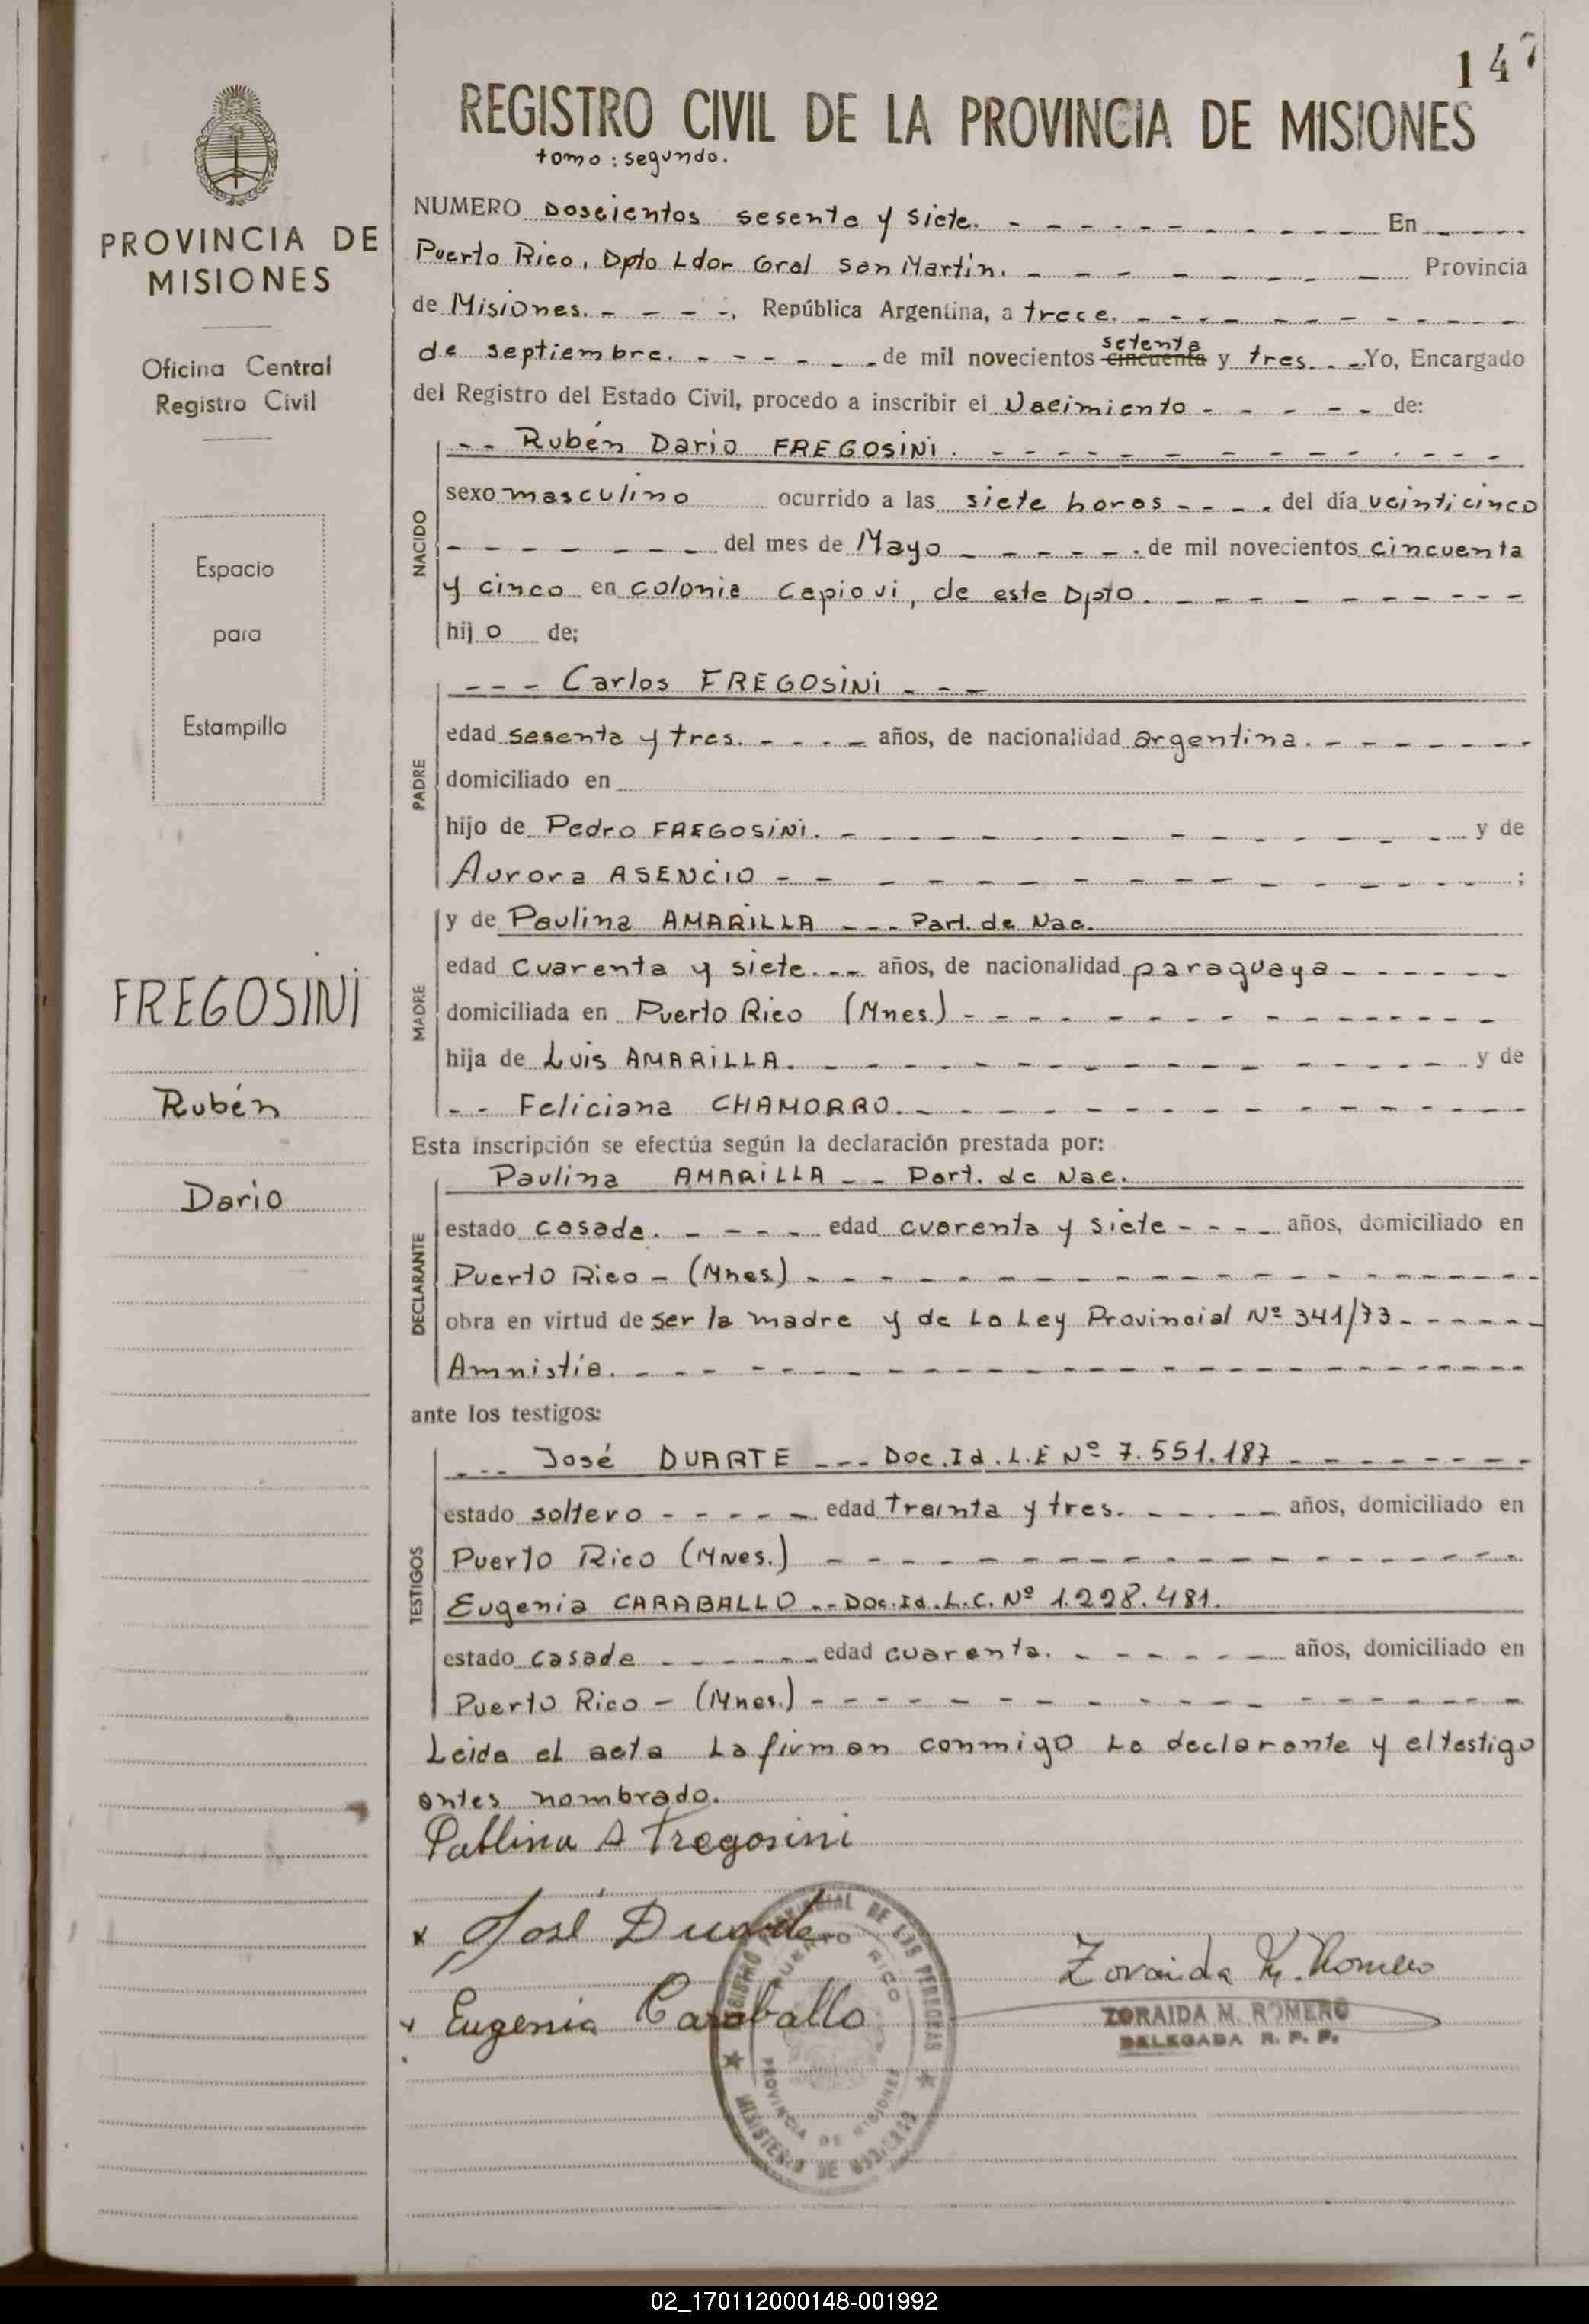 147
REGISTRO CIVIL DE LA PROVINCIA DE MISIONES
tomo: segundo.
PROVINCIA DE
MISIONES
Oficina Central
Registro Civil
Espacio
para
Estampilla
FREGOSINI
Rubén
Dario
NUMERO Doscientos sesenta y siete. En
Puerto Rico, Dpto Ldor Gral San Martín. Provincia
de Misiones. República Argentina, a trece.
de septiembre. de mil novecientos cincuenta setenta y tres. Yo, Encargado
del Registro del Estado Civil, procedo a inscribir el Nacimiento de:
Rubén Dario FREGOSINI.
NACIDO
sexo masculino ocurrido a las siete horas del día veinticinco
del mes de Mayo de mil novecientos cincuenta
y cinco en colonia Capiovi, de este Dpto.
hijo de;
Carlos FREGOSINI
PADRE
edad sesenta y tres. años, de nacionalidad argentina.
domiciliado en
hijo de Pedro FREGOSINI. y de
Aurora ASENCIO ;
MADRE
y de Paulina AMARILLA --- Part. de Nac.
edad cuarenta y siete. años, de nacionalidad paraguaya
domiciliada en Puerto Rico (Mnes.)
hija de Luis AMARILLA. y de
Feliciana CHAMORRO.
Esta inscripción se efectúa según la declaración prestada por:
Paulina AMARILLA -- Part. de Nac.
DECLARANTE
estado casada. edad cuarenta y siete años, domiciliado en
Puerto Rico - (Mnes)
obra en virtud de ser la madre y de La Ley Provincial Nº 341/73
Amnistia.
ante los testigos:
José DUARTE --- Doc. Id. L.E Nº 7.551.187
TESTIGOS
estado soltero edad treinta y tres. años, domiciliado en
Puerto Rico (Mnes.)
Eugenia CARABALLO -- Doc. Id. L.C. Nº 1.228.481.
estado casada edad cuarenta. años, domiciliado en
Puerto Rico - (Mnes.)
Leida el acta La firman conmigo La declarante y el testigo
antes nombrado.
Pablina A Fregosini
x José Duarte
x Eugenia Caraballo
Zoraida M. Romero
ZORAIDA M. ROMERO
DELEGADA R. P. P.
REGISTRO PROVINCIAL DE LAS PERSONAS
PUERTO RICO
PROVINCIA DE MISIONES
MINISTERIO DE GOBIERNO
02_170112000148-001992